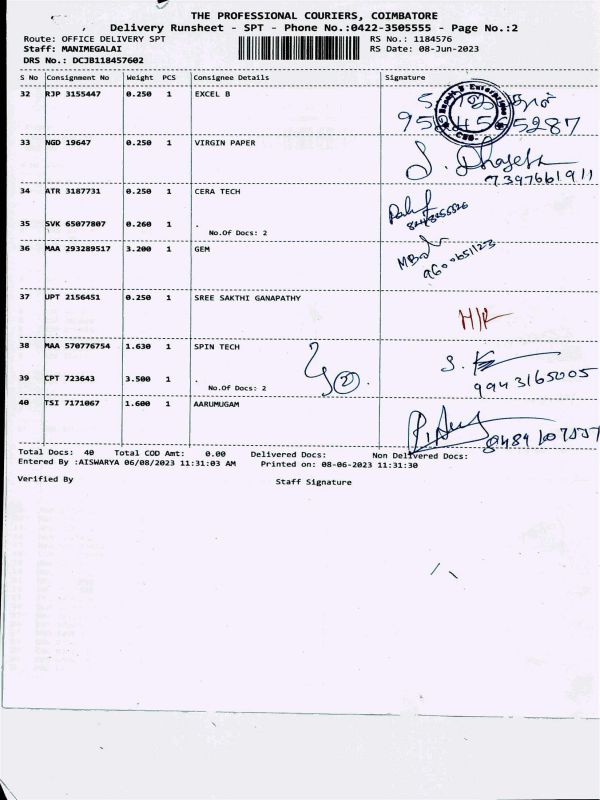 THE PROFESSIONAL COURIERS, COIMBATORE
Delivery Runsheet - SPT - Phone No.:0422-3505555 - Page No.:2
Route: OFFICE DELIVERY SPT RS No.: 1184576
Staff: MANIMEGALAI RS Date: 08-Jun-2023
DRS No.: DCJB118457602
S No Consignment No Weight PCS Consignee Details Signature
32 RJP 3155447 0.250 1 EXCEL B
33 NGD 19647 0.250 1 VIRGIN PAPER
7397661911
34 ATR 3187731 0.250 1 CERA TECH
35 SVK 65077807 0.260 1 .
No.Of Docs: 2
36 MAA 293289517 3.200 1 GEM
9600651123
37 UPT 2156451 0.250 1 SREE SAKTHI GANAPATHY
38 MAA 570776754 1.630 1 SPIN TECH
39 CPT 723643 3.500 1 .
No.Of Docs: 2
9943165005
40 TSI 7171067 1.600 1 AARUMUGAM
Total Docs: 40 Total COD Amt: 0.00 Delivered Docs: Non Delivered Docs:
Entered By :AISWARYA 06/08/2023 11:31:03 AM Printed on: 08-06-2023 11:31:30
Verified By Staff Signature